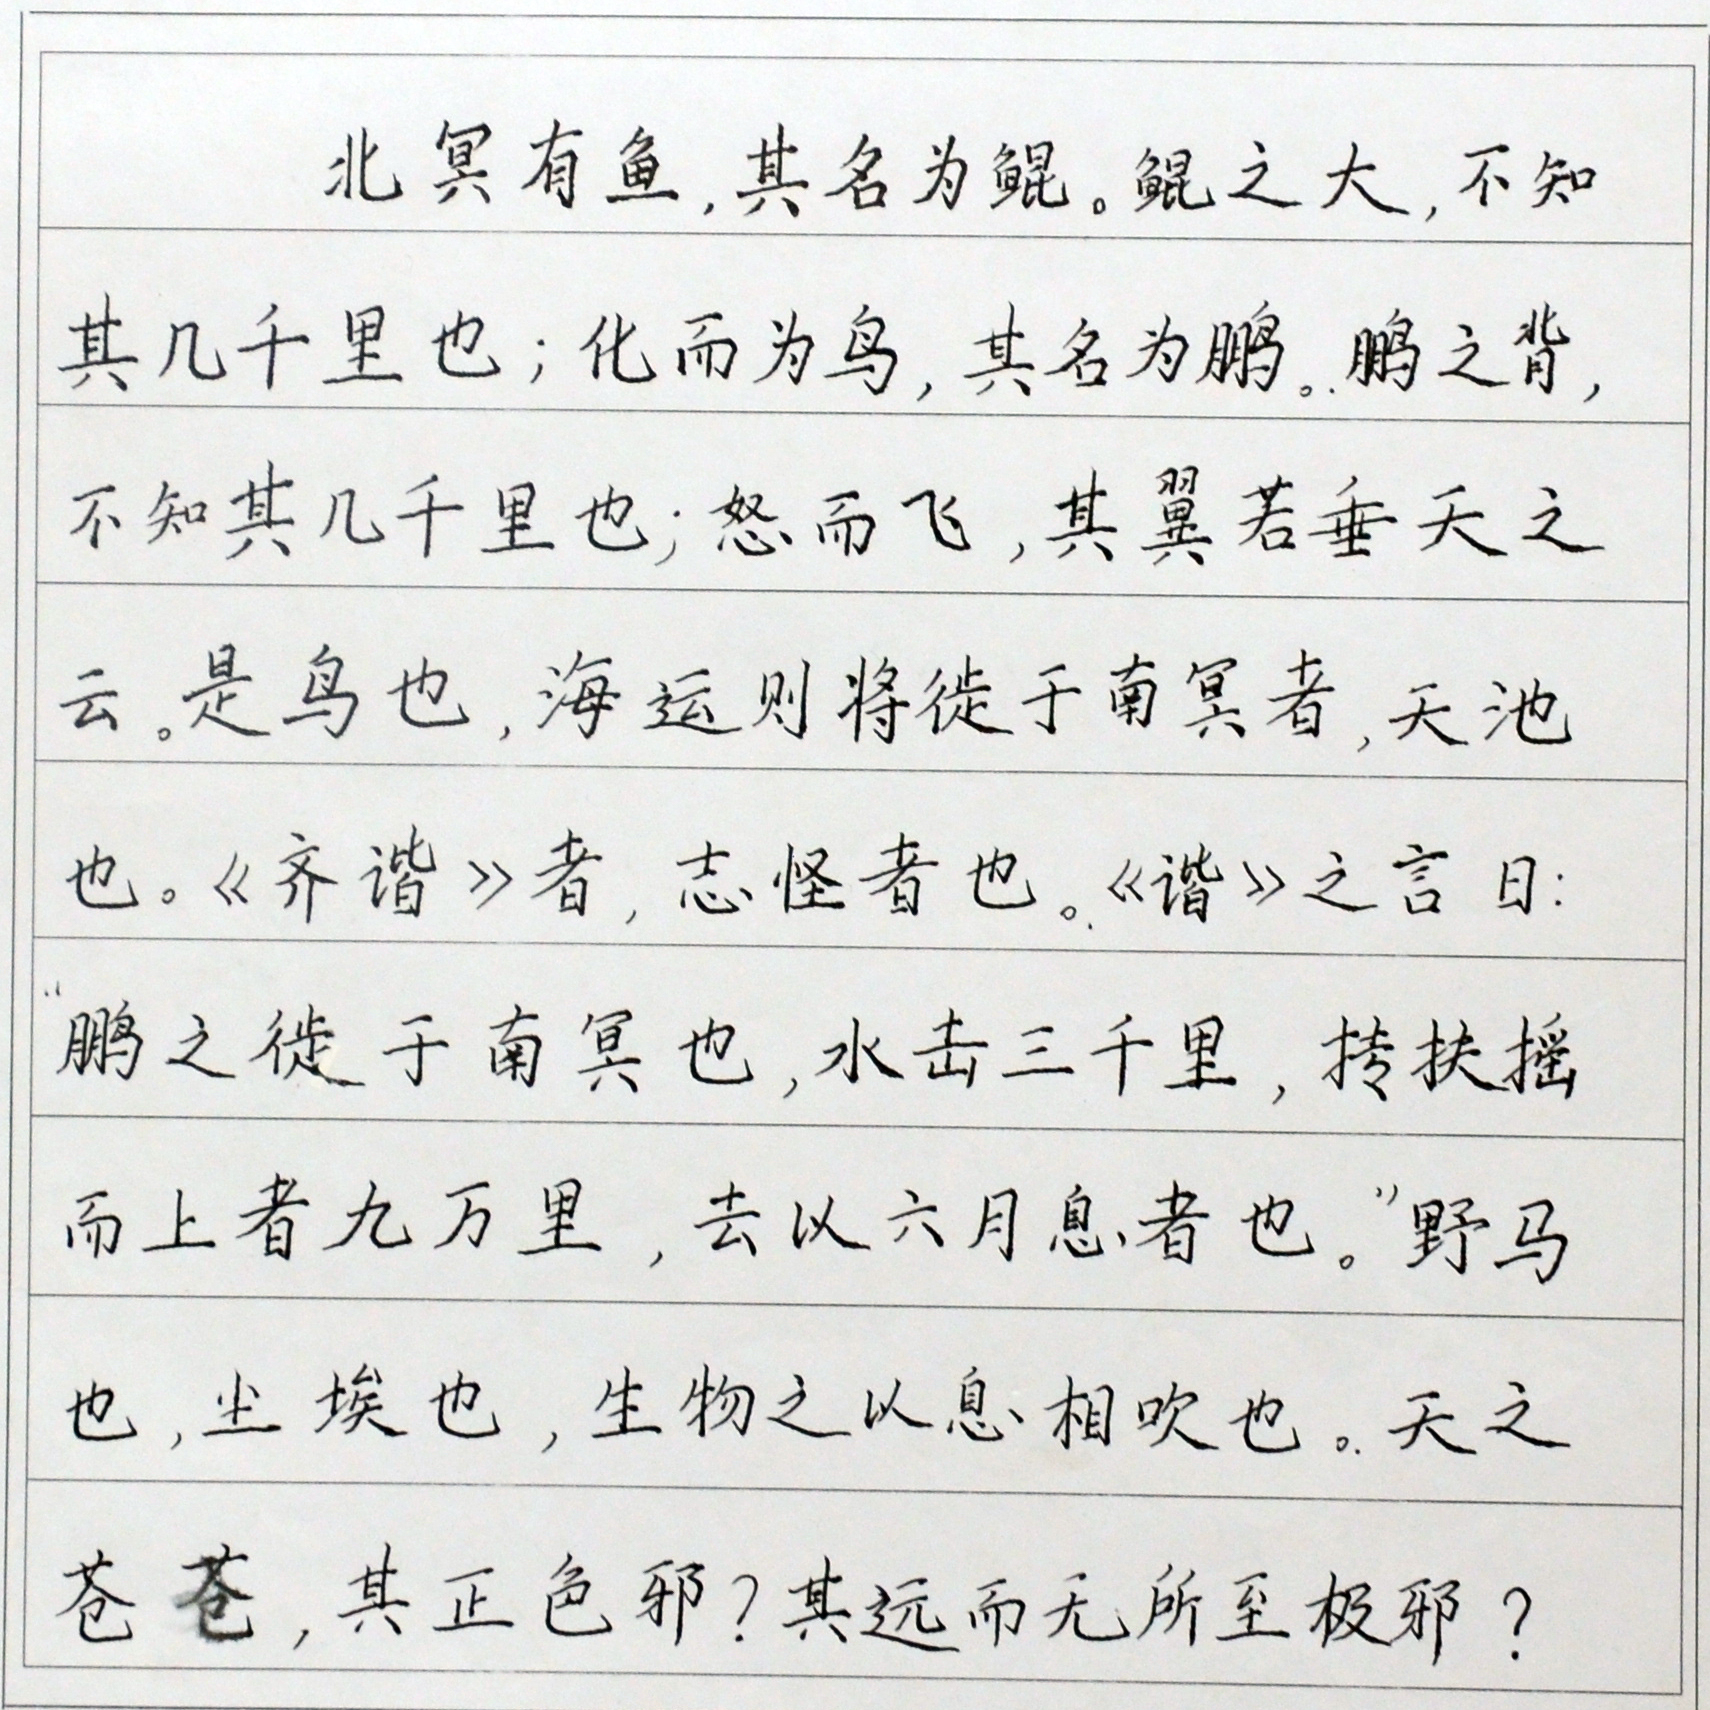 北冥有鱼,其名为鲲。鲲之大,不知
其几千里也;化而为鸟,其名为鹏。鹏之背,
不知其几千里也;怒而飞,其翼若垂天之
云。是鸟也,海运则将徙于南冥者,天池
也。《齐谐》者,志怪者也。《谐》之言曰:
“鹏之徙于南冥也,水击三千里,抟扶摇
而上者九万里,去以六月息者也。”野马
也,尘埃也,生物之以息相吹也。天之
苍苍,其正色邪?其远而无所至极邪?